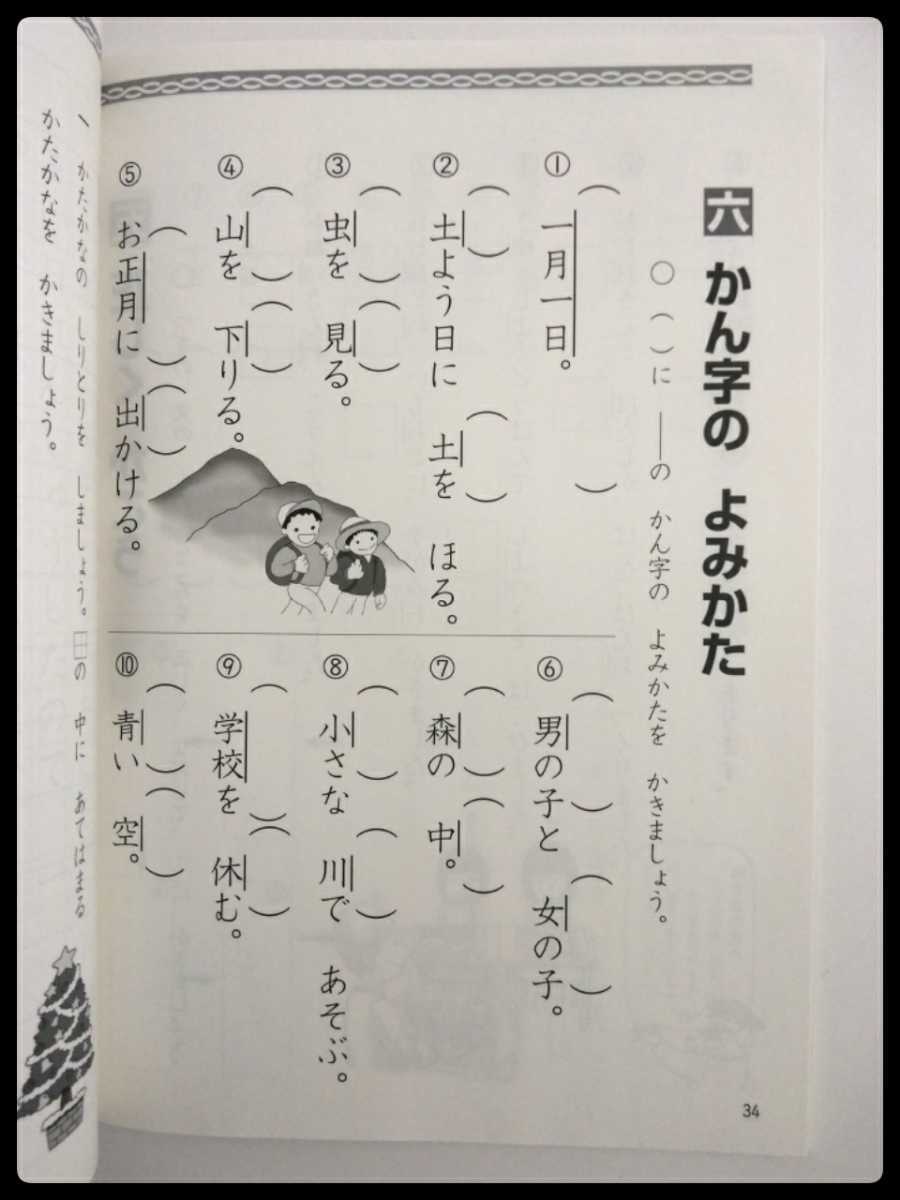 六 かん字の よみかた
○ ( )に ──の かん字の よみかたを かきましょう。
① 一月一日。
② 土よう日に 土を ほる。
③ 虫を 見る。
④ 山を 下りる。
⑤ お正月に 出かける。
⑥ 男の子と 女の子。
⑦ 森の 中。
⑧ 小さな 川で あそぶ。
⑨ 学校を 休む。
⑩ 青い 空。
34
一 かたかなの しりとりを しましょう。□の 中に あてはまる
かたかなを かきましょう。